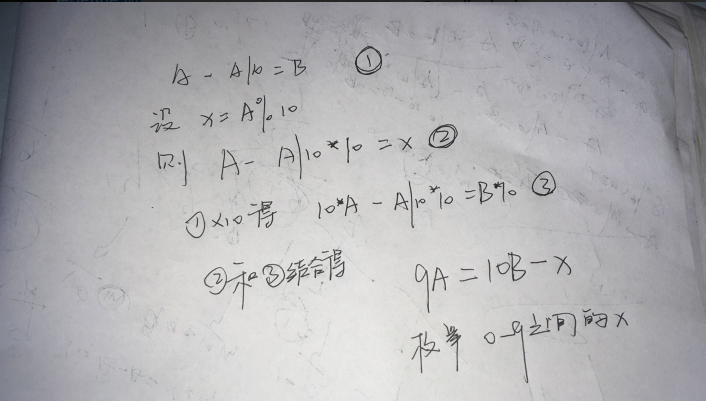 A - A/10 = B ①
设 x = A%10
则 A - A/10*10 = x ②
①×10得 10*A - A/10*10 = B*10 ③
②和③结合得 9A = 10B - x
枚举 0-9之间的x